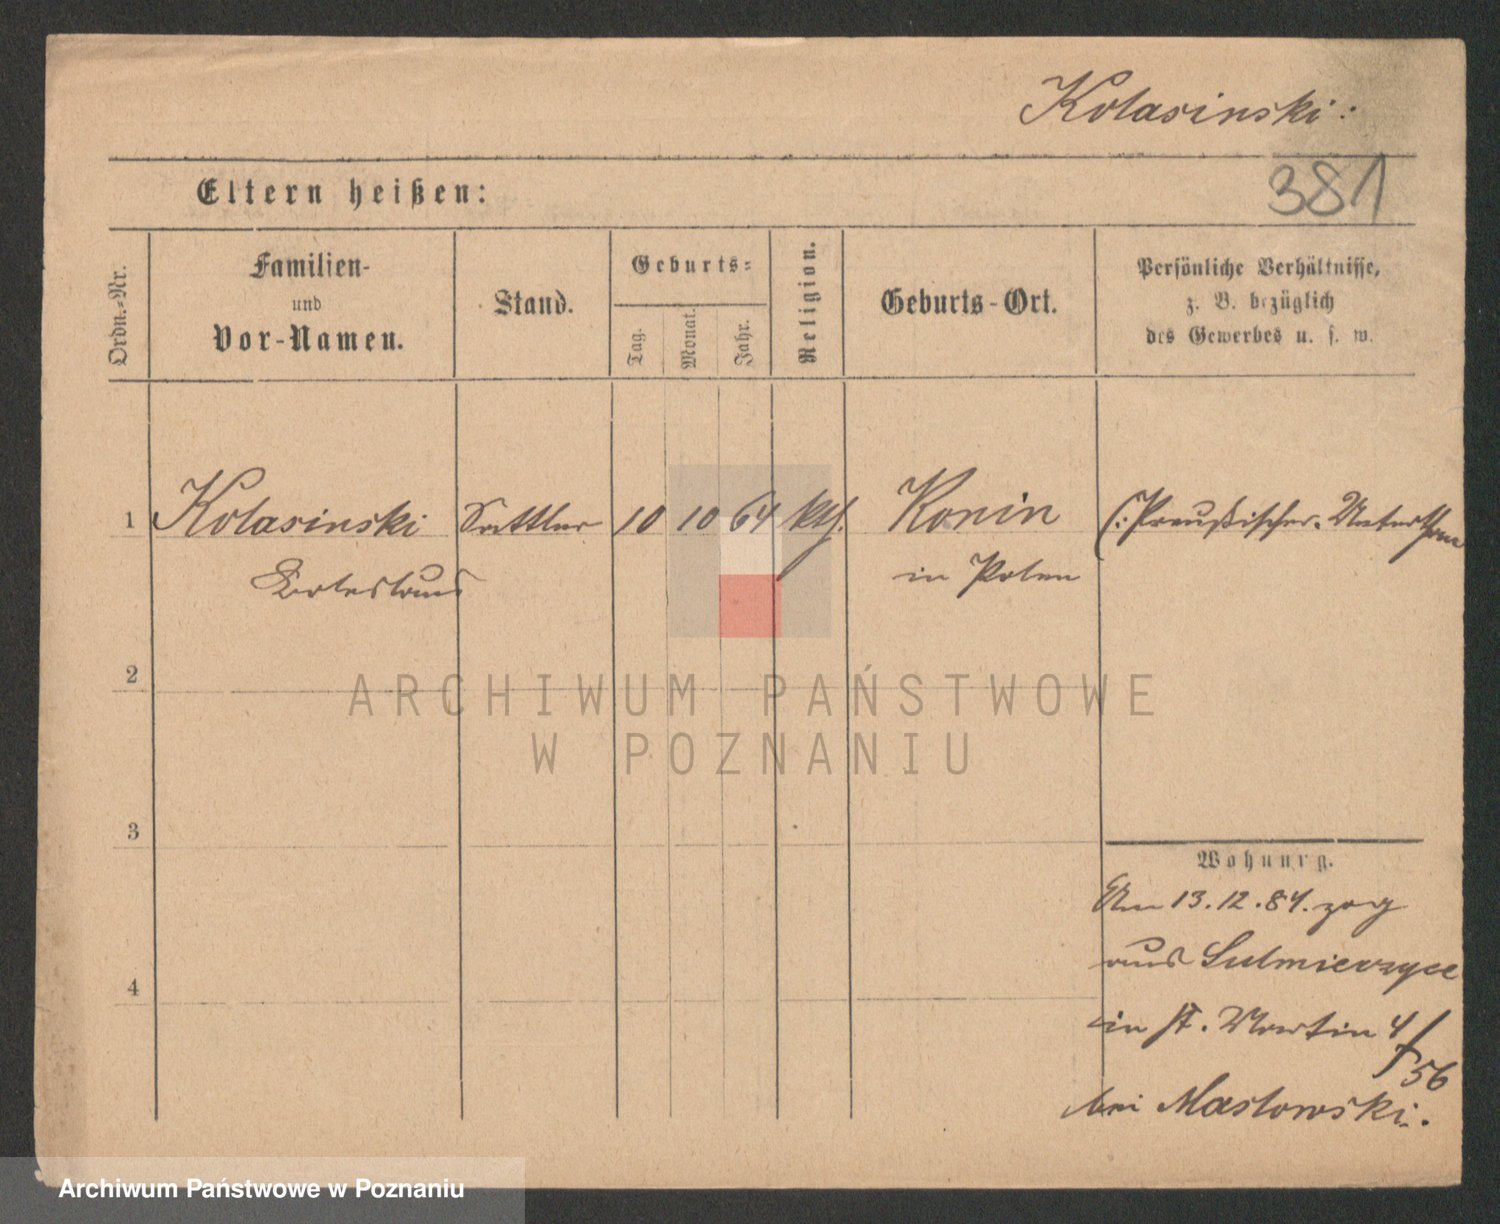 Kolasinski.
381
Eltern heißen:
Ordn.-Nr.
Familien-
und
Vor-Namen.
Stand.
Geburts-
Tag.
Monat.
Jahr.
Religion.
Geburts-Ort.
Persönliche Verhältnisse,
z. B. bezüglich
des Gewerbes u. s. w.
1 Kolasinski Sattler 10 10 64 kth. Konin (: Preußischer Unterthan
Boleslaus in Polen
2
ARCHIWUM PAŃSTWOWE
W POZNANIU
3
Wohnung.
Am 13.12.84. zog
aus Sulmierzyce
4
in St. Martin 4/56
bei Maslowski.
Archiwum Państwowe w Poznaniu